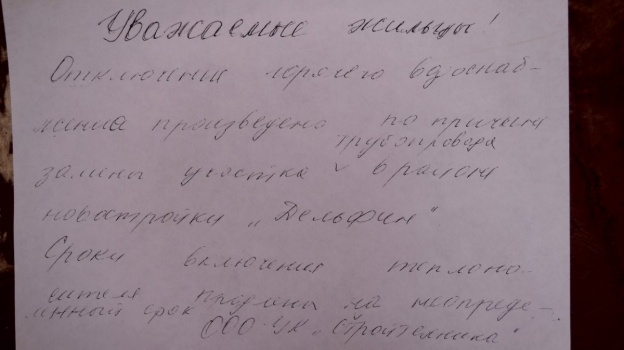 Уважаемые жильцы!
Отключение горячего водоснаб-
жения произведено по причине
трубопровода
замены участка ˅ в районе
новостройки „Дельфин“
Сроки включения теплоно-
сителя продлены на неопреде-
ленный срок
ООО УК „Стройтехника“